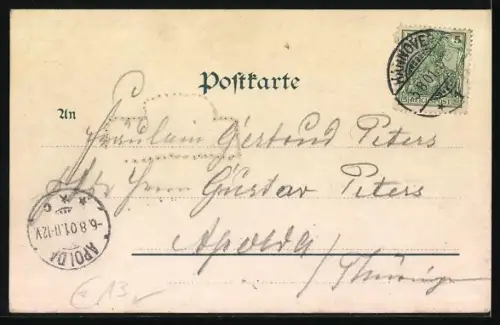 Postkarte
HANNOVER
5
5.8.01
An
Fräulein Gertrud Peters
Adr. Herrn Gustav Peters
Apolda
/Thüringen
-6.8.01.11-12V
APOLDA
E 13